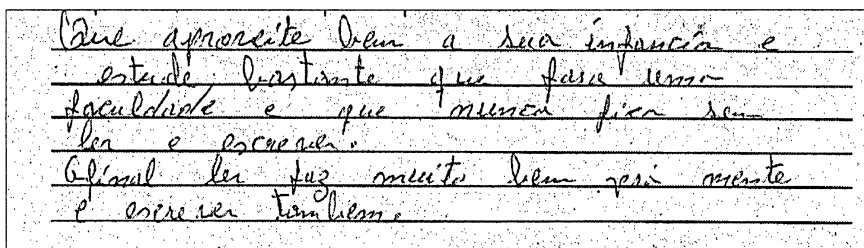 Que aproveite bem a sua infancia e
estude bastante que fasa uma
faculdade e que nunca fica sem
ler e escrever.
Afinal ler faz muito bem pra mente
e escrever tambem.